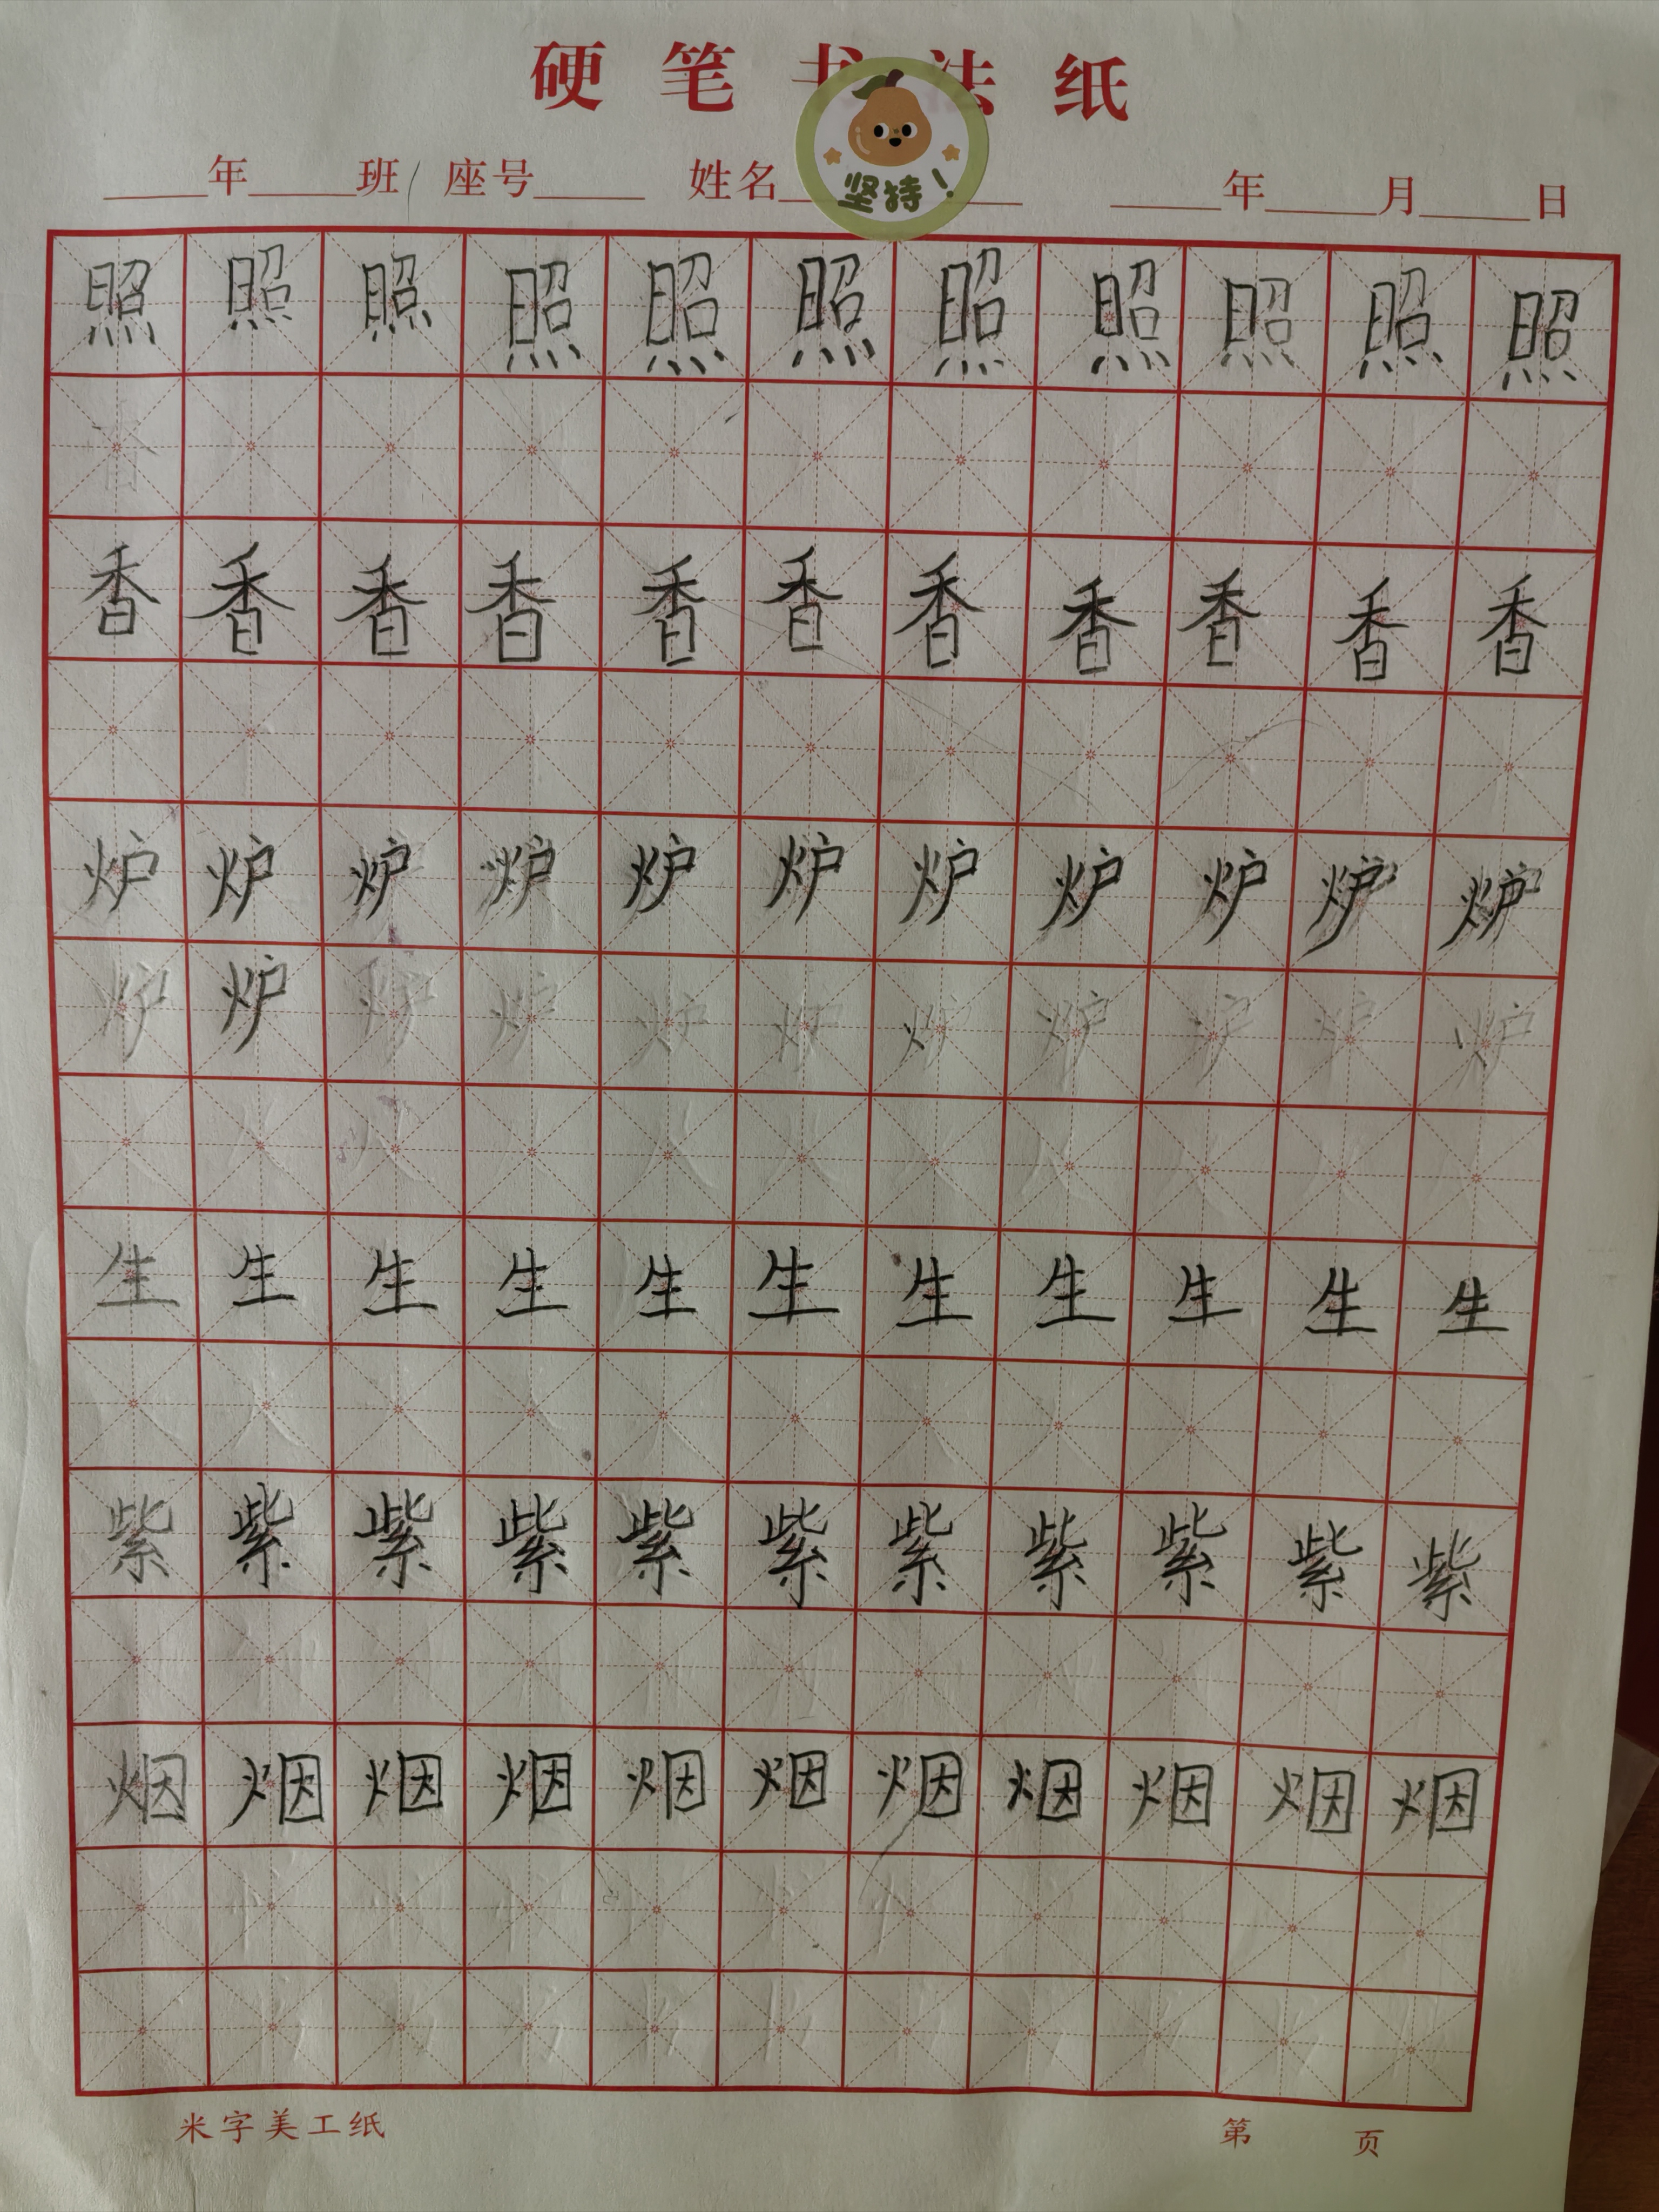 硬笔书法纸
坚持！
年 班 座号 姓名 年 月 日
照照照照照照照照照照照
香香香香香香香香香香香
炉炉炉炉炉炉炉炉炉炉炉
炉炉炉炉炉炉炉炉炉炉炉
生生生生生生生生生生生
紫紫紫紫紫紫紫紫紫紫紫
烟烟烟烟烟烟烟烟烟烟烟
米字美工纸 第 页